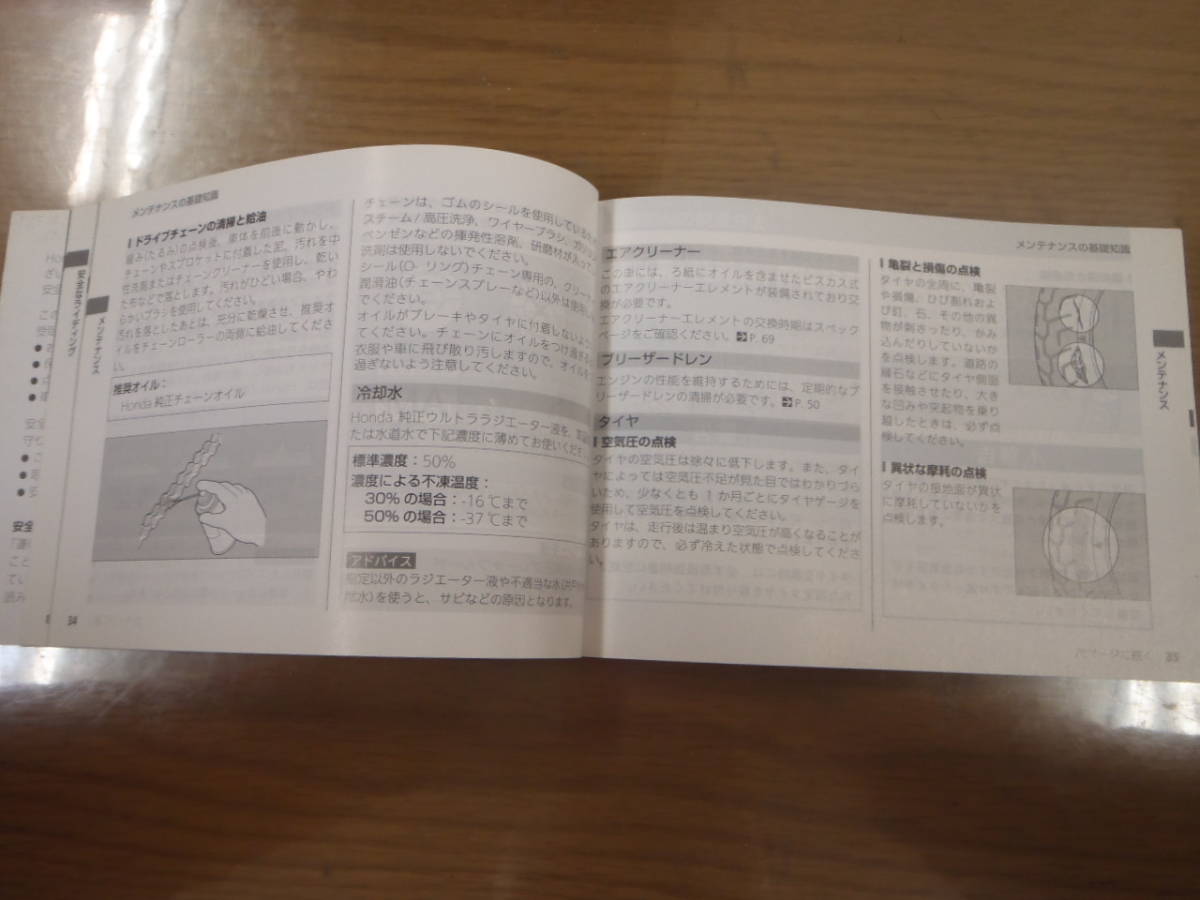 メンテナンスの基礎知識
ドライブチェーンの清掃と給油
緩み(たるみ)の点検後、車体を前後に動かし、
チェーンやスプロケットに付着した泥、汚れを中
性洗剤またはチェーンクリーナーを使用し、乾い
た布などで落とします。汚れがひどい場合、やわ
らかいブラシを使用してください。
汚れを落としたあとは、充分に乾燥させ、推奨オ
イルをチェーンローラーの両側に給油してくださ
い。
推奨オイル:
Honda 純正チェーンオイル
安全なライディング
メンテナンス
34
チェーンは、ゴムのシールを使用している
スチーム/高圧洗浄、ワイヤーブラシ、ガソリン
ベンゼンなどの揮発性溶剤、研磨材が入って
洗剤は使用しないでください。
シール(O- リング)チェーン専用の、クリー
潤滑油(チェーンスプレーなど)以外は使用
でください。
オイルがブレーキやタイヤに付着しないよう
てください。チェーンにオイルをつけ過ぎる
衣服や車に飛び散り汚しますので、オイルを
過ぎないよう注意してください。
冷却水
Honda 純正ウルトララジエーター液を、
たは水道水で下記濃度に薄めてお使いくだ
標準濃度:50%
濃度による不凍温度:
30% の場合:-16℃まで
50% の場合:-37℃まで
アドバイス
指定以外のラジエーター液や不適当な水
水)を使うと、サビなどの原因となります。
メンテナンスの基礎知識
エアクリーナー
この車には、ろ紙にオイルを含ませたビスカス式
のエアクリーナーエレメントが装備されており交
換が必要です。
エアクリーナーエレメントの交換時期はスペック
ページをご確認ください。P. 69
ブリーザードレン
エンジンの性能を維持するためには、定期的なブ
リーザードレンの清掃が必要です。P. 50
タイヤ
空気圧の点検
タイヤの空気圧は徐々に低下します。また、タイ
ヤによっては空気圧不足が見た目ではわかりづら
いため、少なくとも 1 か月ごとにタイヤゲージを
使用して空気圧を点検してください。
タイヤは、走行後は温まり空気圧が高くなることが
ありますので、必ず冷えた状態で点検してくださ
い。
亀裂と損傷の点検
タイヤの全周に、亀裂
や損傷、ひび割れおよ
び釘、石、その他の異
物が刺さったり、かみ
込んだりしていないか
を点検します。道路の
縁石などにタイヤ側面
を接触させたり、大き
な凹みや突起物を乗り
越したときは、必ず点
検してください。
異状な摩耗の点検
タイヤの接地面が異状
に摩耗していないかを
点検します。
メンテナンス
次ページに続く 35